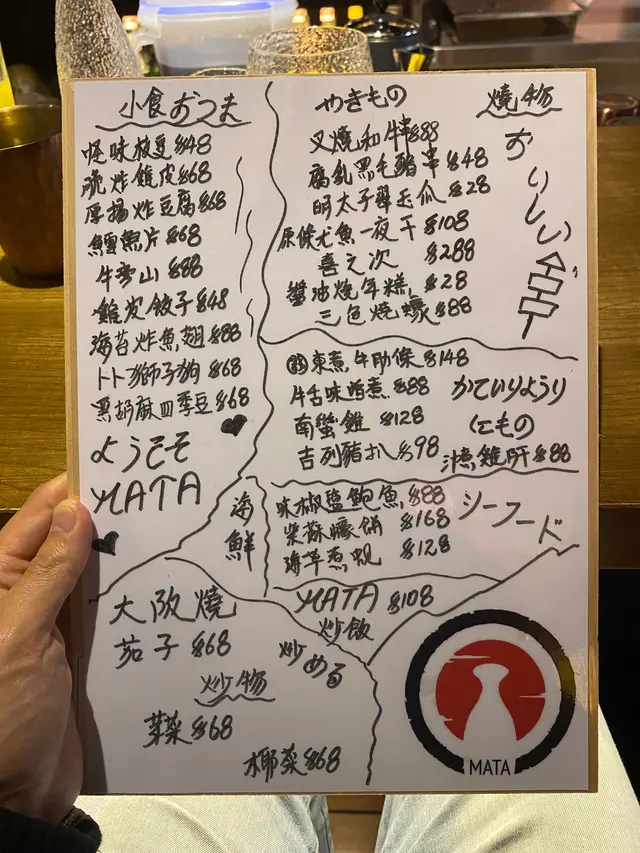 小食 おつま
怪味枝豆 $48
脆炸雞皮 $68
厚揚炸豆腐 $68
鱈魚片 $68
牛旁山 $88
雞皮餃子 $48
海苔炸魚翅 $88
卜卜獅子狗 $68
黑胡麻四季豆 $68
ようこそ
MATA
やきもの 燒物
叉燒和牛串 $88
腐乳黑毛豬串 $48
明太子翠玉瓜 $28
原條尤魚一夜干 $108
喜之次 $288
醬油燒年糕 $28
三色燒蠔 $88
おいしい
東煮牛肋條 $148
牛舌味噌煮 $88
南蠻雞 $128
吉列豬扒 $98
かていりょうり
にもの
汁煮雞肝 $88
海鮮
味椒鹽鮑魚 $88
紫蘇蠔餅 $168
海草煮蜆 $128
シーフード
MATA $108
炒飯
大阪燒
茄子 $68
炒める
炒物
芽菜 $68
椰菜 $68
MATA